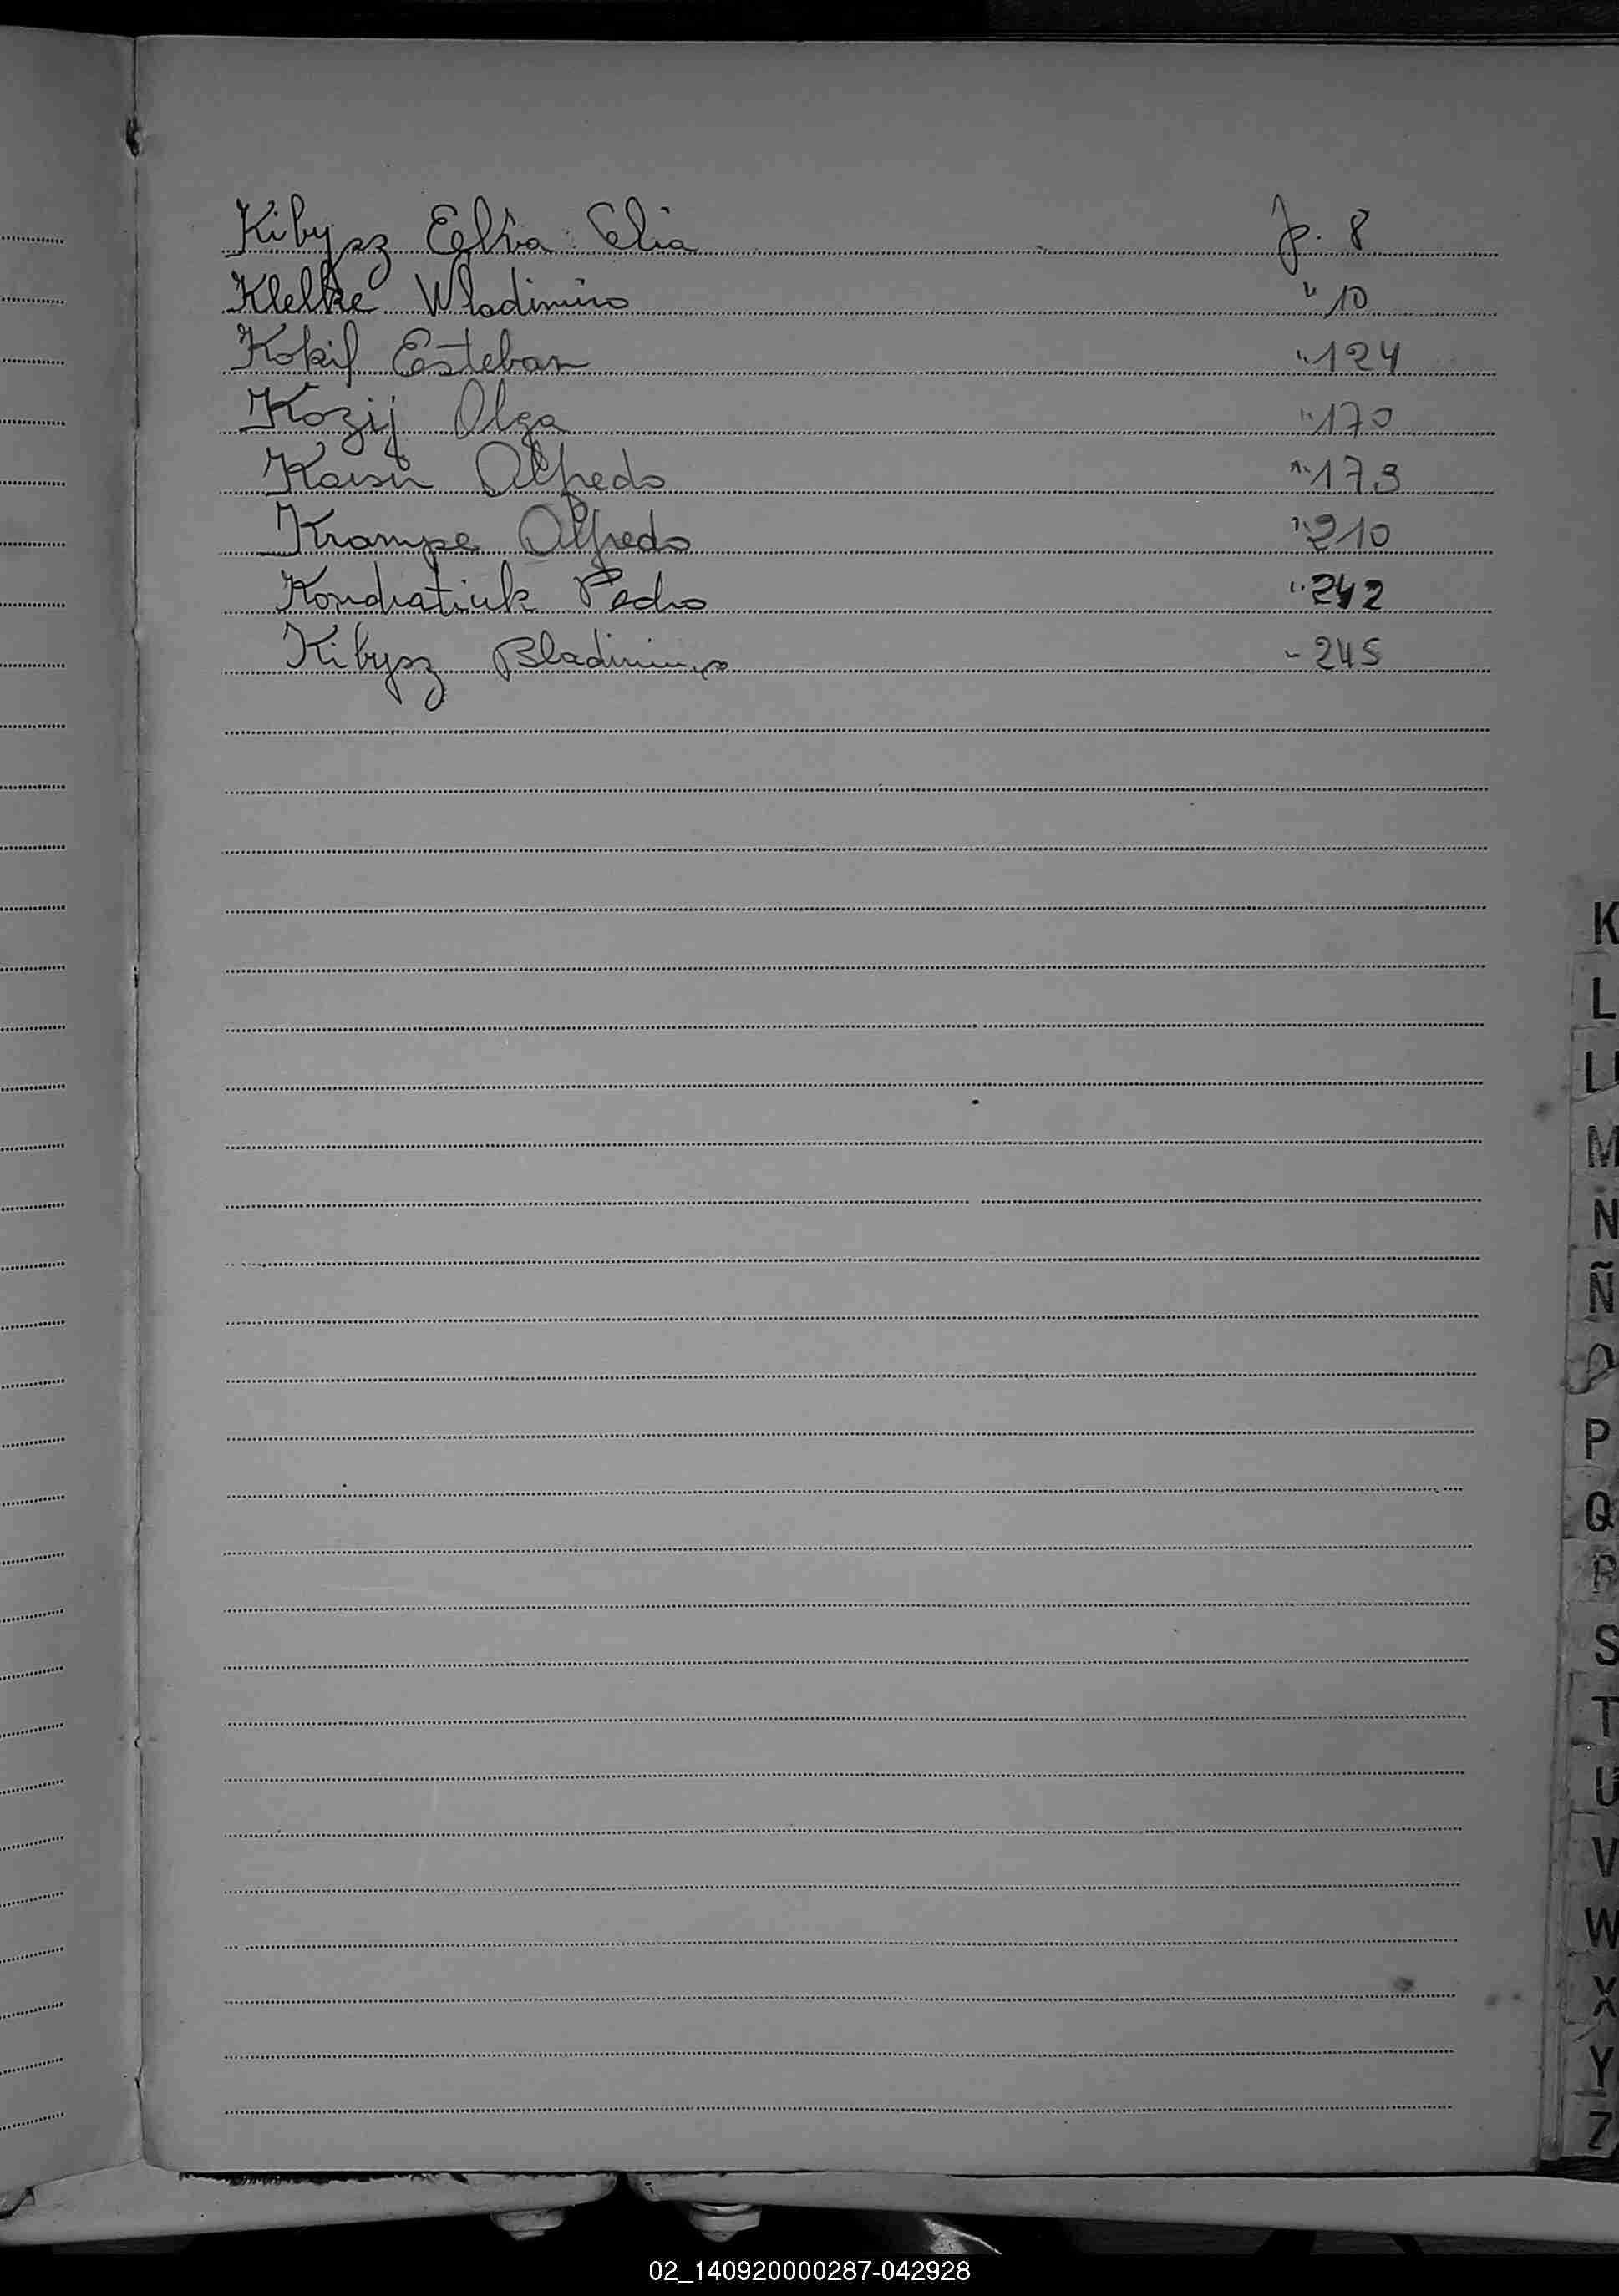 Kibysz Elba Elia f. 8
Klelke Wladimiro " 10
Kokif Esteban " 124
Kozij Olga " 170
Alfredo " 173
Krampe Alfredo " 210
Kondratiuk Pedro " 242
Kibysz Bladimiro - 245
K
L
LL
M
N
Ñ
O
P
Q
R
S
T
U
V
W
X
Y
Z
02_140920000287-042928